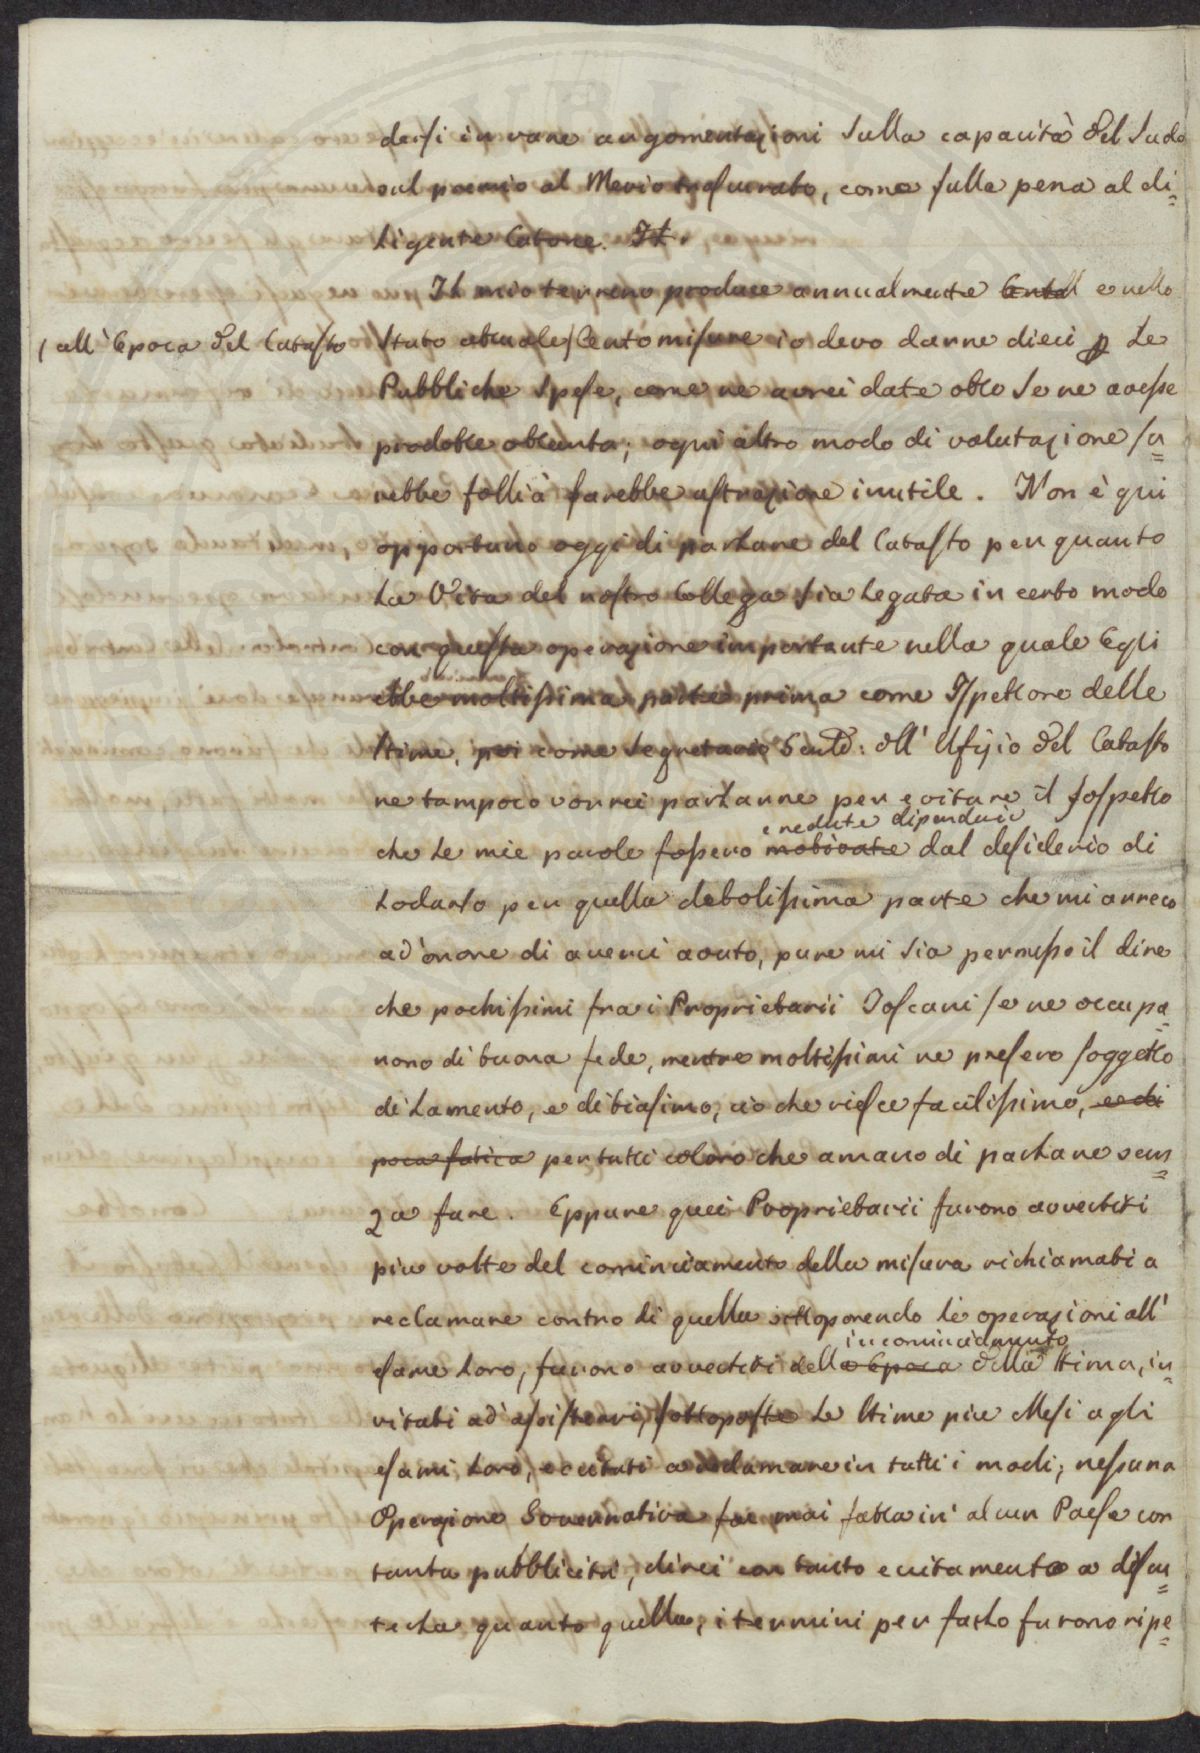 dersi in vane argomentazioni sulla capacità del suolo
sul premio al Mevio trascurato, come sulla pena al di=
ligente Catone. Il
Il mio terreno produce annualmente Cento e nello
( all'Epoca del Catasto
stato attuale ( Cento misure io devo darne dieci p le
Pubbliche Spese, come ne avrei date otto se ne avesse
prodotte ottanta; ogni altro modo di valutazione sa=
rebbe follia sarebbe astrazione inutile. Non è qui
opportuno oggi di parlare del Catasto per quanto
la Vita del nostro Collega sia legata in certo modo
con questa operazione importante nella quale Egli
ebbe moltissima parte prima come Ispettore delle
stime, poi come Segretario dell'Ufizio del Catasto
ne tampoco vorrei parlarne per evitare il sospetto
credute dipendere
che le mie parole fossero motivate dal desiderio di
lodarlo per quella debolissima parte che mi arreco
ad'onore di averci avuto, pure mi sia permesso il dire
che pochissimi fra i Proprietarii Toscani se ne occupa=
rono di buona fede, mentre moltissimi ne presero soggetto
di lamento, e di biasimo, ciò che riesce facilissimo, e di
poca fatica per tutti coloro che amano di parlare sen=
za fare. Eppure quei Proprietarii furono avvertiti
piu volte del cominciamento della misura richiamati a
reclamare contro di quella sottoponendo le operazioni all'
incominciamento
esame loro, furono avvertiti della Epoca della stima, in=
vitati ad'assistervi, sottoposte le stime piu Mesi agli
esami loro, eccitati a reclamare in tutti i modi; nessuna
Operazione Governativa fu mai fatta in alcun Paese con
tanta pubblicità, direi con tanto eccitamento a discu=
terla quanto quella, i termini per farlo furono ripe=